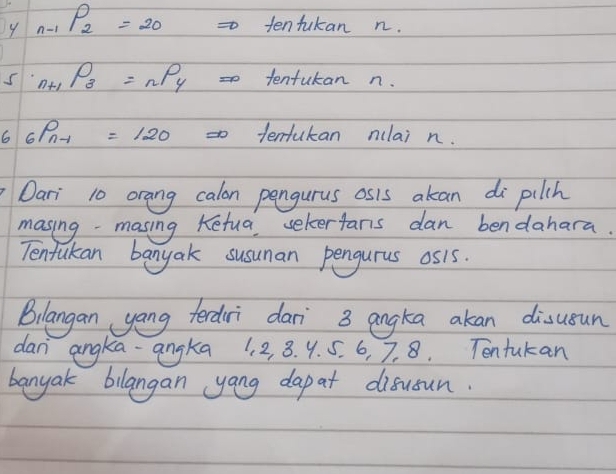 4 n-1P2 = 20 ⇒ tentukan n.
5. n+1P3 = nP4 ⇒ tentukan n.
6 6Pn-1 = 120 ⇒ tentukan nilai n.
Dari 10 orang calon pengurus osis akan di pilih
masing - masing Ketua, sekertaris dan bendahara.
Tentukan banyak susunan pengurus osis.
Bilangan yang terdiri dari 3 angka akan disusun
dari angka - angka 1, 2, 3. 4. 5. 6, 7, 8. Tentukan
banyak bilangan yang dapat disusun.